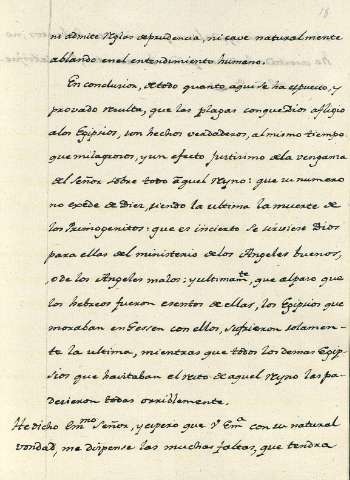 18
ni admite reglas de prudencia, ni cave naturalmente
ablando en el entendimiento humano.
En conclusion, de todo quanto aqui se ha espuesto, y
provado resulta, que las plagas con que Dios afligio
a los Egipsios, son hechos verdaderos, al mismo tiempo
que milagrosos, y un efecto justisimo de la venganza
del Señor sobre todo aquel Reyno: que su numero
no exede de Diez, siendo la ultima la muerte de
los Primogenitos: que es incierto se sirviese Dios
para ellas del ministerio de los Angeles buenos,
o de los Angeles malos; y ultimamte, que al paso que
los hebreos fueron esentos de ellas, los Egipsios que
moraban en Gessen con ellos, sufrieron solamen-
te la ultima, mientras que todos los demas Egip-
sios que havitaban el resto de aquel Reyno las pa-
decieron todas orriblemente.
He dicho Emmo Señor, y espero que V Ema con su natural
vondad, me dispense las muchas faltas, que tendra